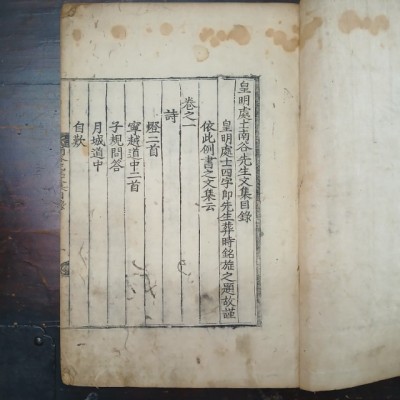 皇明處士南谷先生文集目錄
皇明處士四字卽先生葬時銘旌之題故謹
依此例書之文集云
卷之一
詩
燈二首
寧越道中二首
子規問答
月城道中
自歎